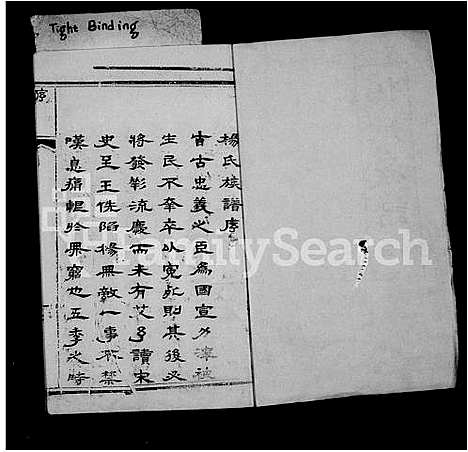 Tight Binding
序
楊氏族譜序
自古忠義之臣為國宣力澤被
生民不幸卒以冤死則其後必
將發彰流慶而未有艾予讀宋
史至王侁陷楊無敵一事不禁
嘆息痛恨於無窮也五季之時
FamilySearch